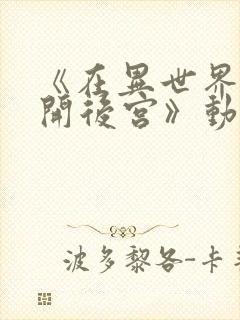 《在異世界
開後宮》動
波多黎各-卡